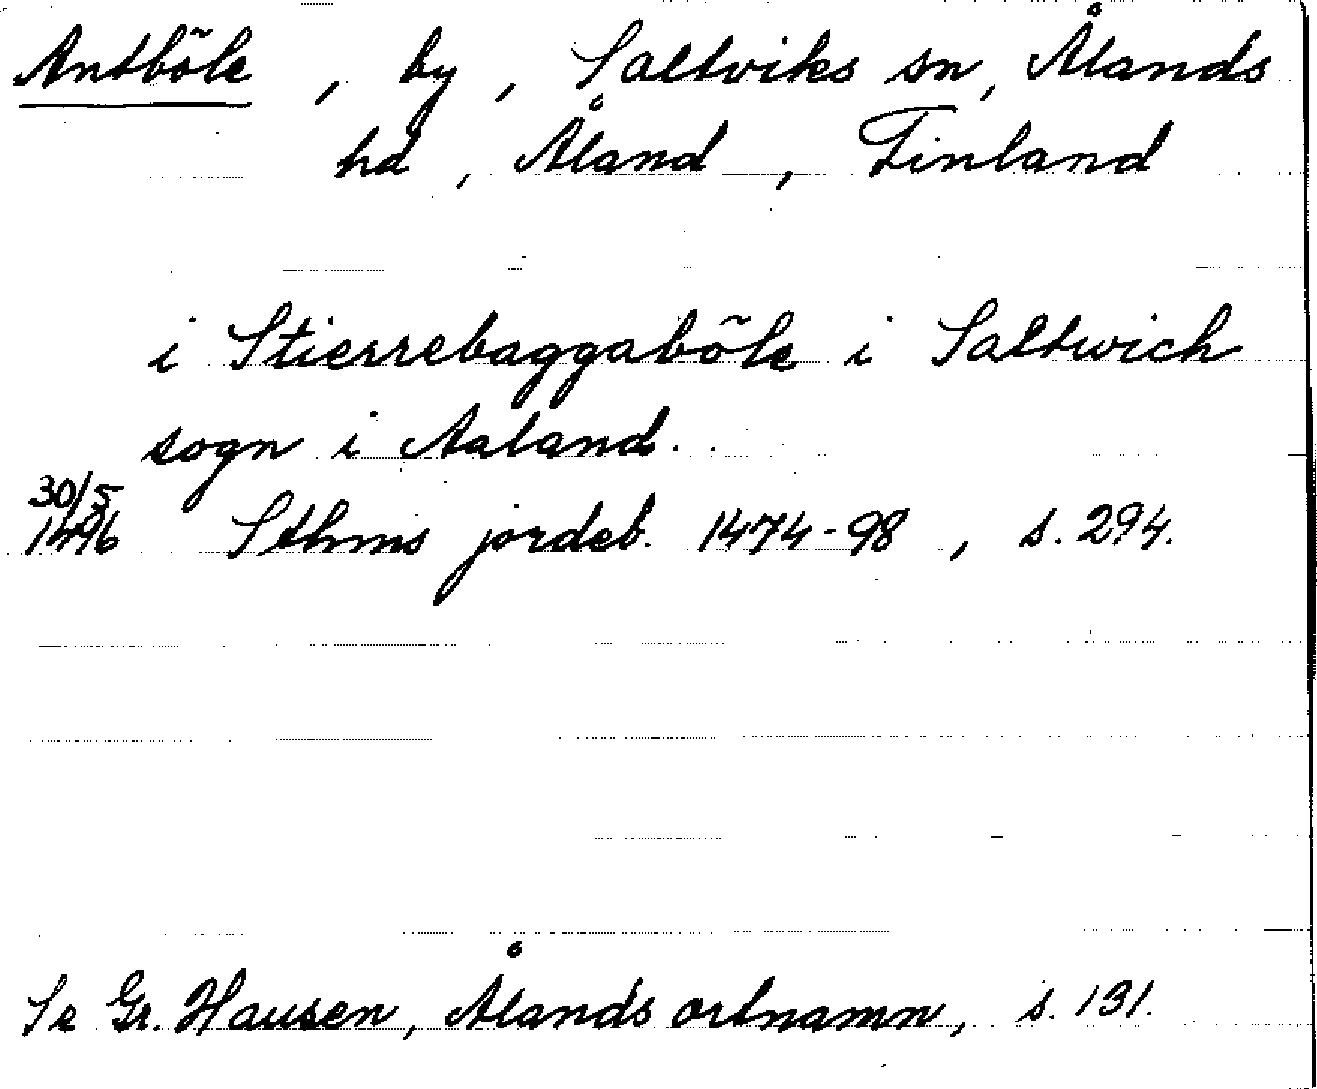 Antböle, by, Saltviks sn, Ålands
hd, Åland, Finland
i Stierrebaggaböle i Saltwich
sogn i Aaland.
30/5
1496 Sthms jordeb. 1474-98, s. 294.
Se Gr. Hausen, Ålands ortnamn, s. 131.